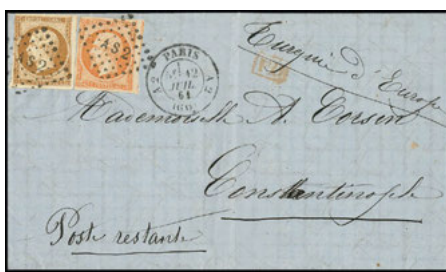 AS2
AS2
PARIS
A 2
A 2
12
JUIL.
61
(60)
Turquie d'Europe
P.D.
Mademoiselle A. Corsin
Constantinople
Poste restante